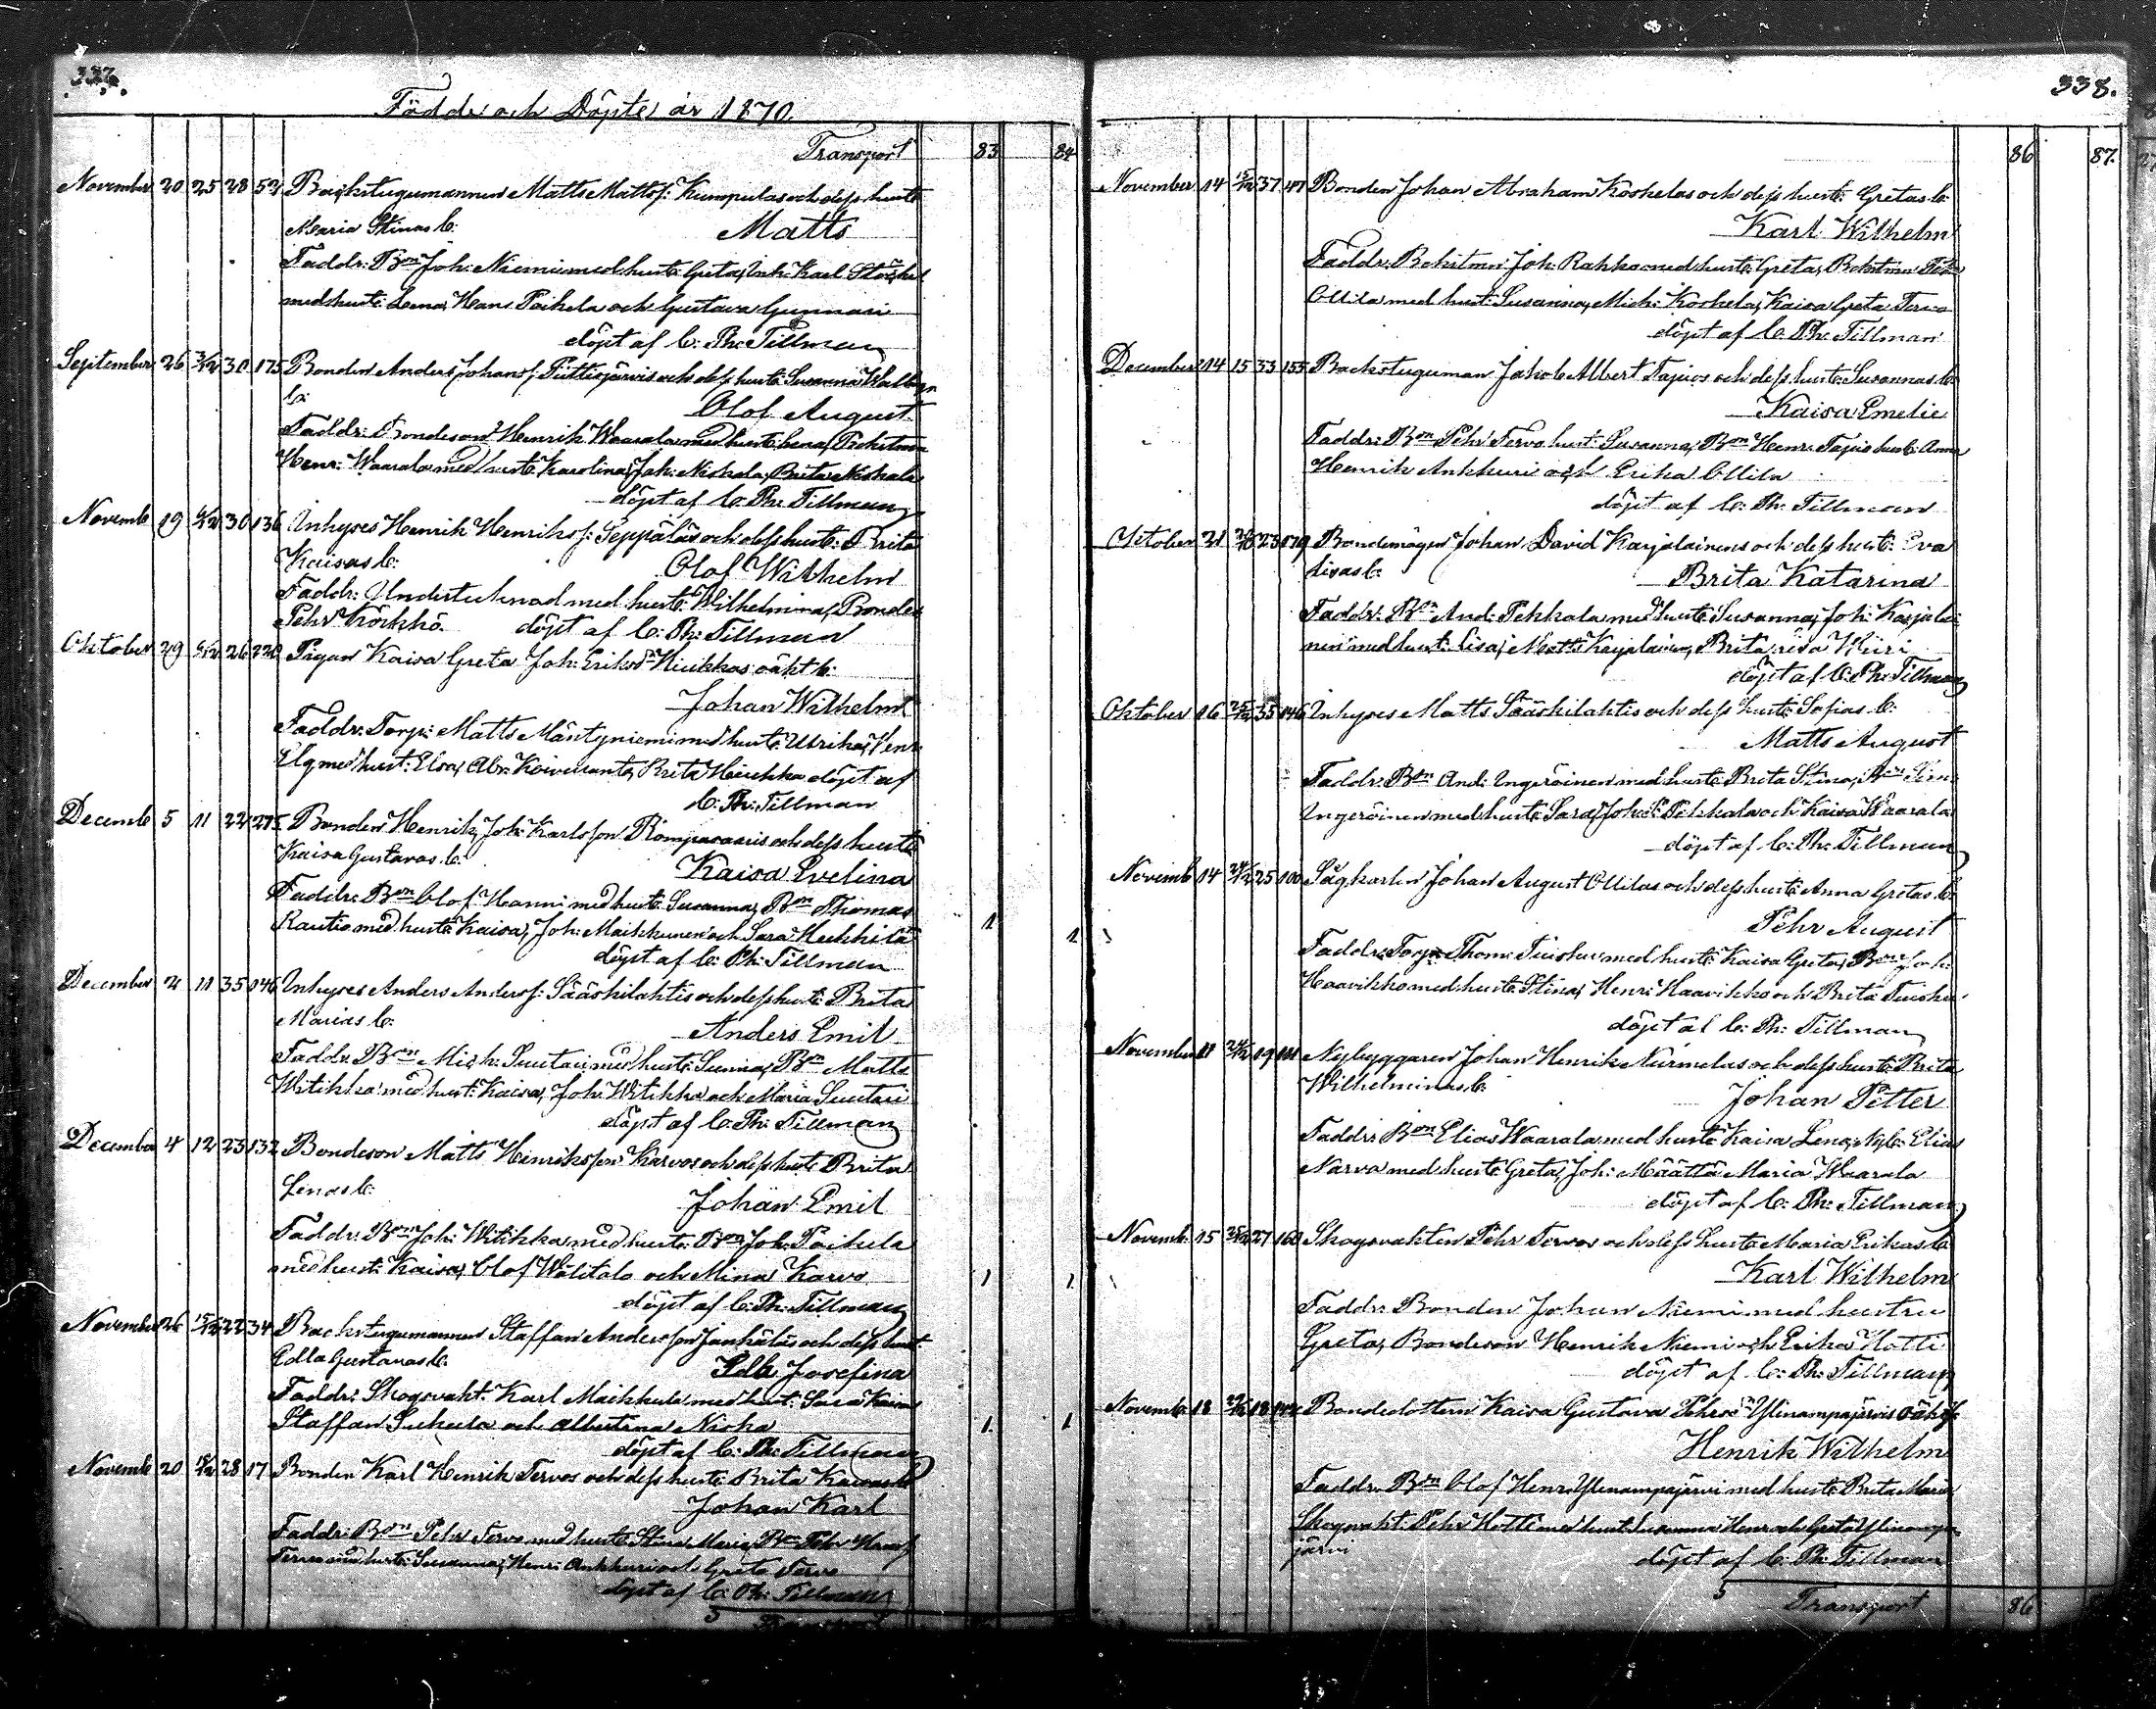 337.
Födde och Döpte år 1870.
Transport 83 84
November 20 25 28 52 Backstugumannen Matts Mattsf: Kumpulas och dess hustr
Maria Stinas b: Matts
Faddr: Bon Joh: Niemi med hustr: Greta, Inh: Karl Stöckel
med hustr: Lena, Hans Poikela och Gustava Gunnari
döpt af C: Ph: Tillman
September 26 3/12 30 175 Bonden Anders Johansf: Püttisjärvis och dess hustr: Susanna Walborgs
b: Olof August
Faddr: Bondeson Henrik Waarala med hustr: Lena,
Henr: Waarala med hustr: Karolina, Joh: Niskala, Brita Niskala
döpt af C: Ph: Tillman
Novemb 19 30 136 Inhyses Henrik Henriksf: Seppäläs och dess hustr: Brita
Kaisas b: Olof Wilhelm
Faddr: Undertecknad med hustr: Wilhelmina, Bonden
Pehr Körkkö. döpt af C: Ph: Tillman
Oktober 29 26 220 Pigan Kaisa Greta Joh: Eriksdr Hiukkas oäkt b:
Johan Wilhelm
Faddr: Torp: Matts Mäntyniemi med hustr: Ulrika, Henr
Elg med hust: Elsa, Abr: Koivuranta, Brita Heikka döpt af
C: Ph: Tillman
Decemb 5 11 22 275 Bonden Henrik Joh: Karlsson Rompasaaris och dess hustr
Kaisa Gustavas b: Kaisa Evelina
Faddr: Bon Olof Hanni med hustr: Susanna, Bon Thomas
Rautio med hustr: Kaisa, Joh: Maikkunen och Sara Heikkilä 1 1
döpt af C: Ph: Tillman
December 4 11 35 146 Inhyses Anders Andersf: Sääskilahtis och dess hustr: Brita
Marias b: Anders Emil
Faddr: Bon Mich: Suutari med hustr: Sanna, Bon Matts
Witikka med hust: Kaisa, Joh: Witikka och Maria Suutari
döpt af C: Ph: Tillman
December 4 12 23 132 Bondeson Matts Henriksson Karvos och dess hustr Brita
Lenas b: Johan Emil
Faddr: Bon Joh: Witikka med hustr: Bon Joh: Poikela
med hustr: Kaisa, Olof Wälitalo och Mina Karvo 1 1
döpt af C: Ph: Tillman
November 26 15/12 22 34 Backstugumannen Staffan Andersson Jankäläs och dess hust:
Edla Gustavas b: Edla Josefina
Faddr: Skogsvakt: Karl Maikkula med hust: Sara Kaisa
Staffan och Albertina Niska 1 1
döpt af C: Ph: Tillman
Novemb 20 28 17 Bonden Karl Henrik Tervos och dess hustr: Brita Kaisas b
Johan Karl
Faddr: Bon Pehr Tervo med hustr: Stina Maria, Bon Pehr
Tervo med hustr: Susanna, Henr: Ankkuri och Greta Tervo
döpt af C: Ph: Tillman
5
338.
86 87.
November 14 15/12 37 47 Bonden Johan Abraham Koskelas och dess hustr: Gretas b:
Karl Wilhelm
Faddr: Bckstmn Joh: Rahko med hustr: Greta, Bckstmn
Ollila med hust: Susanna, Mich: Koskela, Kaisa Greta Tervo
döpt af C: Ph: Tillman
December 14 15 33 155 Backstuguman Jakob Albert Tapios och dess hustr: Susannas b:
Kaisa Emelie
Faddr: Bon Pehr Tervo hust: Susanna, Bon Henr: Tapio hustr: Anna
Henrik Ankkuri och Erika Ollila
döpt af C: Ph: Tillman
Oktober 21 23 179 Bondemågen Johan David Karjalainens och dess hustr: Eva
Lisas b: Brita Katarina
Faddr: Bon And: Pekkala med hustr: Susanna, Joh: Karjalai
nen med hust: Lisa, Matts Karjalainen, Brita Lisa Wiiri
döpt af C: Ph: Tillman
Oktober 16 25/12 35 146 Inhyses Matts Sääskilahtis och dess hustr: Sofias b:
Matts August
Faddr: Bon And: Ingeröinen med hustr: Brita Stina, Bon
Ingeröinen med hustr: Sara, Johan Pekkala och Kaisa Waarala
döpt af C: Ph: Tillman
Novemb 14 24/12 25 100 Sågkarlen Johan August Ollilas och dess hustr: Anna Gretas b:
Pehr August
Faddr: Torp: Thom: Tuisku med hustr: Kaisa Greta, Bon Joh:
Haavikko med hustr: Stina, Henr: Haavikko och Brita Tuisku
döpt af C: Ph: Tillman
November 11 24/12 19 101 Nybyggaren Johan Henrik Nurmelas och dess hustr: Brita
Wilhelminas b: Johan Petter
Faddr: Bon Elias Waarala med hustr: Kaisa Lena, Nyb: Elias
Narva med hustr: Greta, Joh: Määttä Maria Waarala
döpt af C: Ph: Tillman
Novemb: 15 25/12 27 160 Skogsvakten Pehr Tervos och dess hustr: Maria Erikas b:
Karl Wilhelm
Faddr: Bonden Johan Niemi med hustru
Greta, Bondeson Henrik Niemi och Erika Hotti
döpt af C: Ph: Tillman
Novemb 18 18 Bondedottern Kaisa Gustava Pehrsdr Ylinampajärvis oäkta
Henrik Wilhelm
Faddr: Bon Olof Henr: Ylinampajärvi med hustr: Brita Maria
Skogsvakt: Pehr Hotti med hust: Susanna Henr: och Greta Ylinampa
järvi döpt af C: Ph: Tillman
5
Transport 86